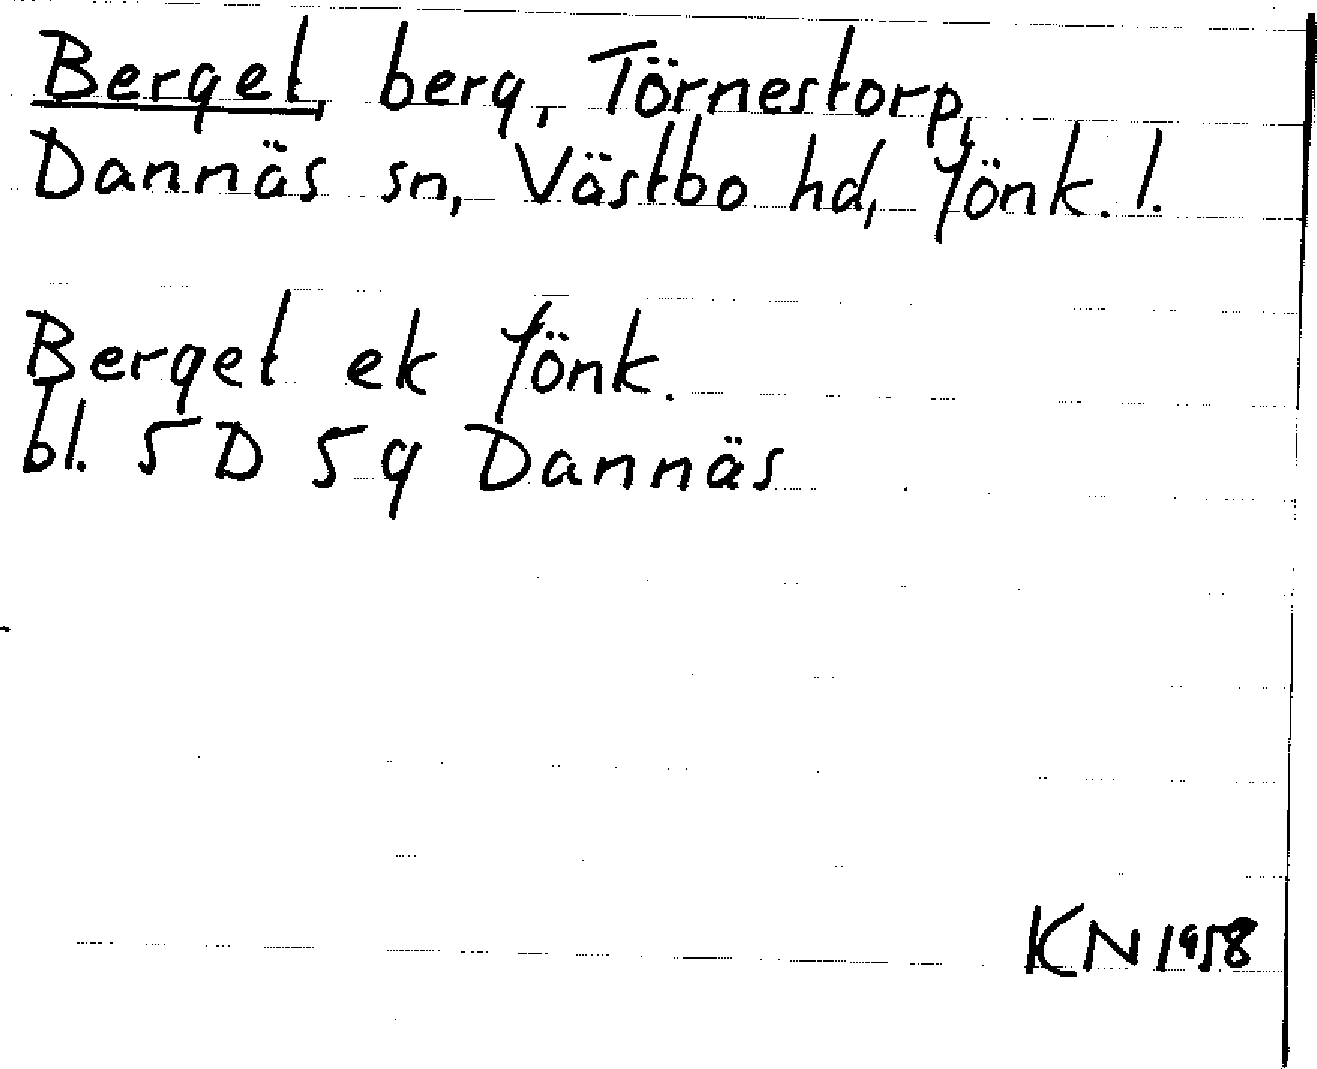 Berget, berg, Törnestorp,
Dannäs sn, Västbo hd, Jönk. l.
Berget ek Jönk.
bl. 5 D 5 g Dannäs
KN 1958